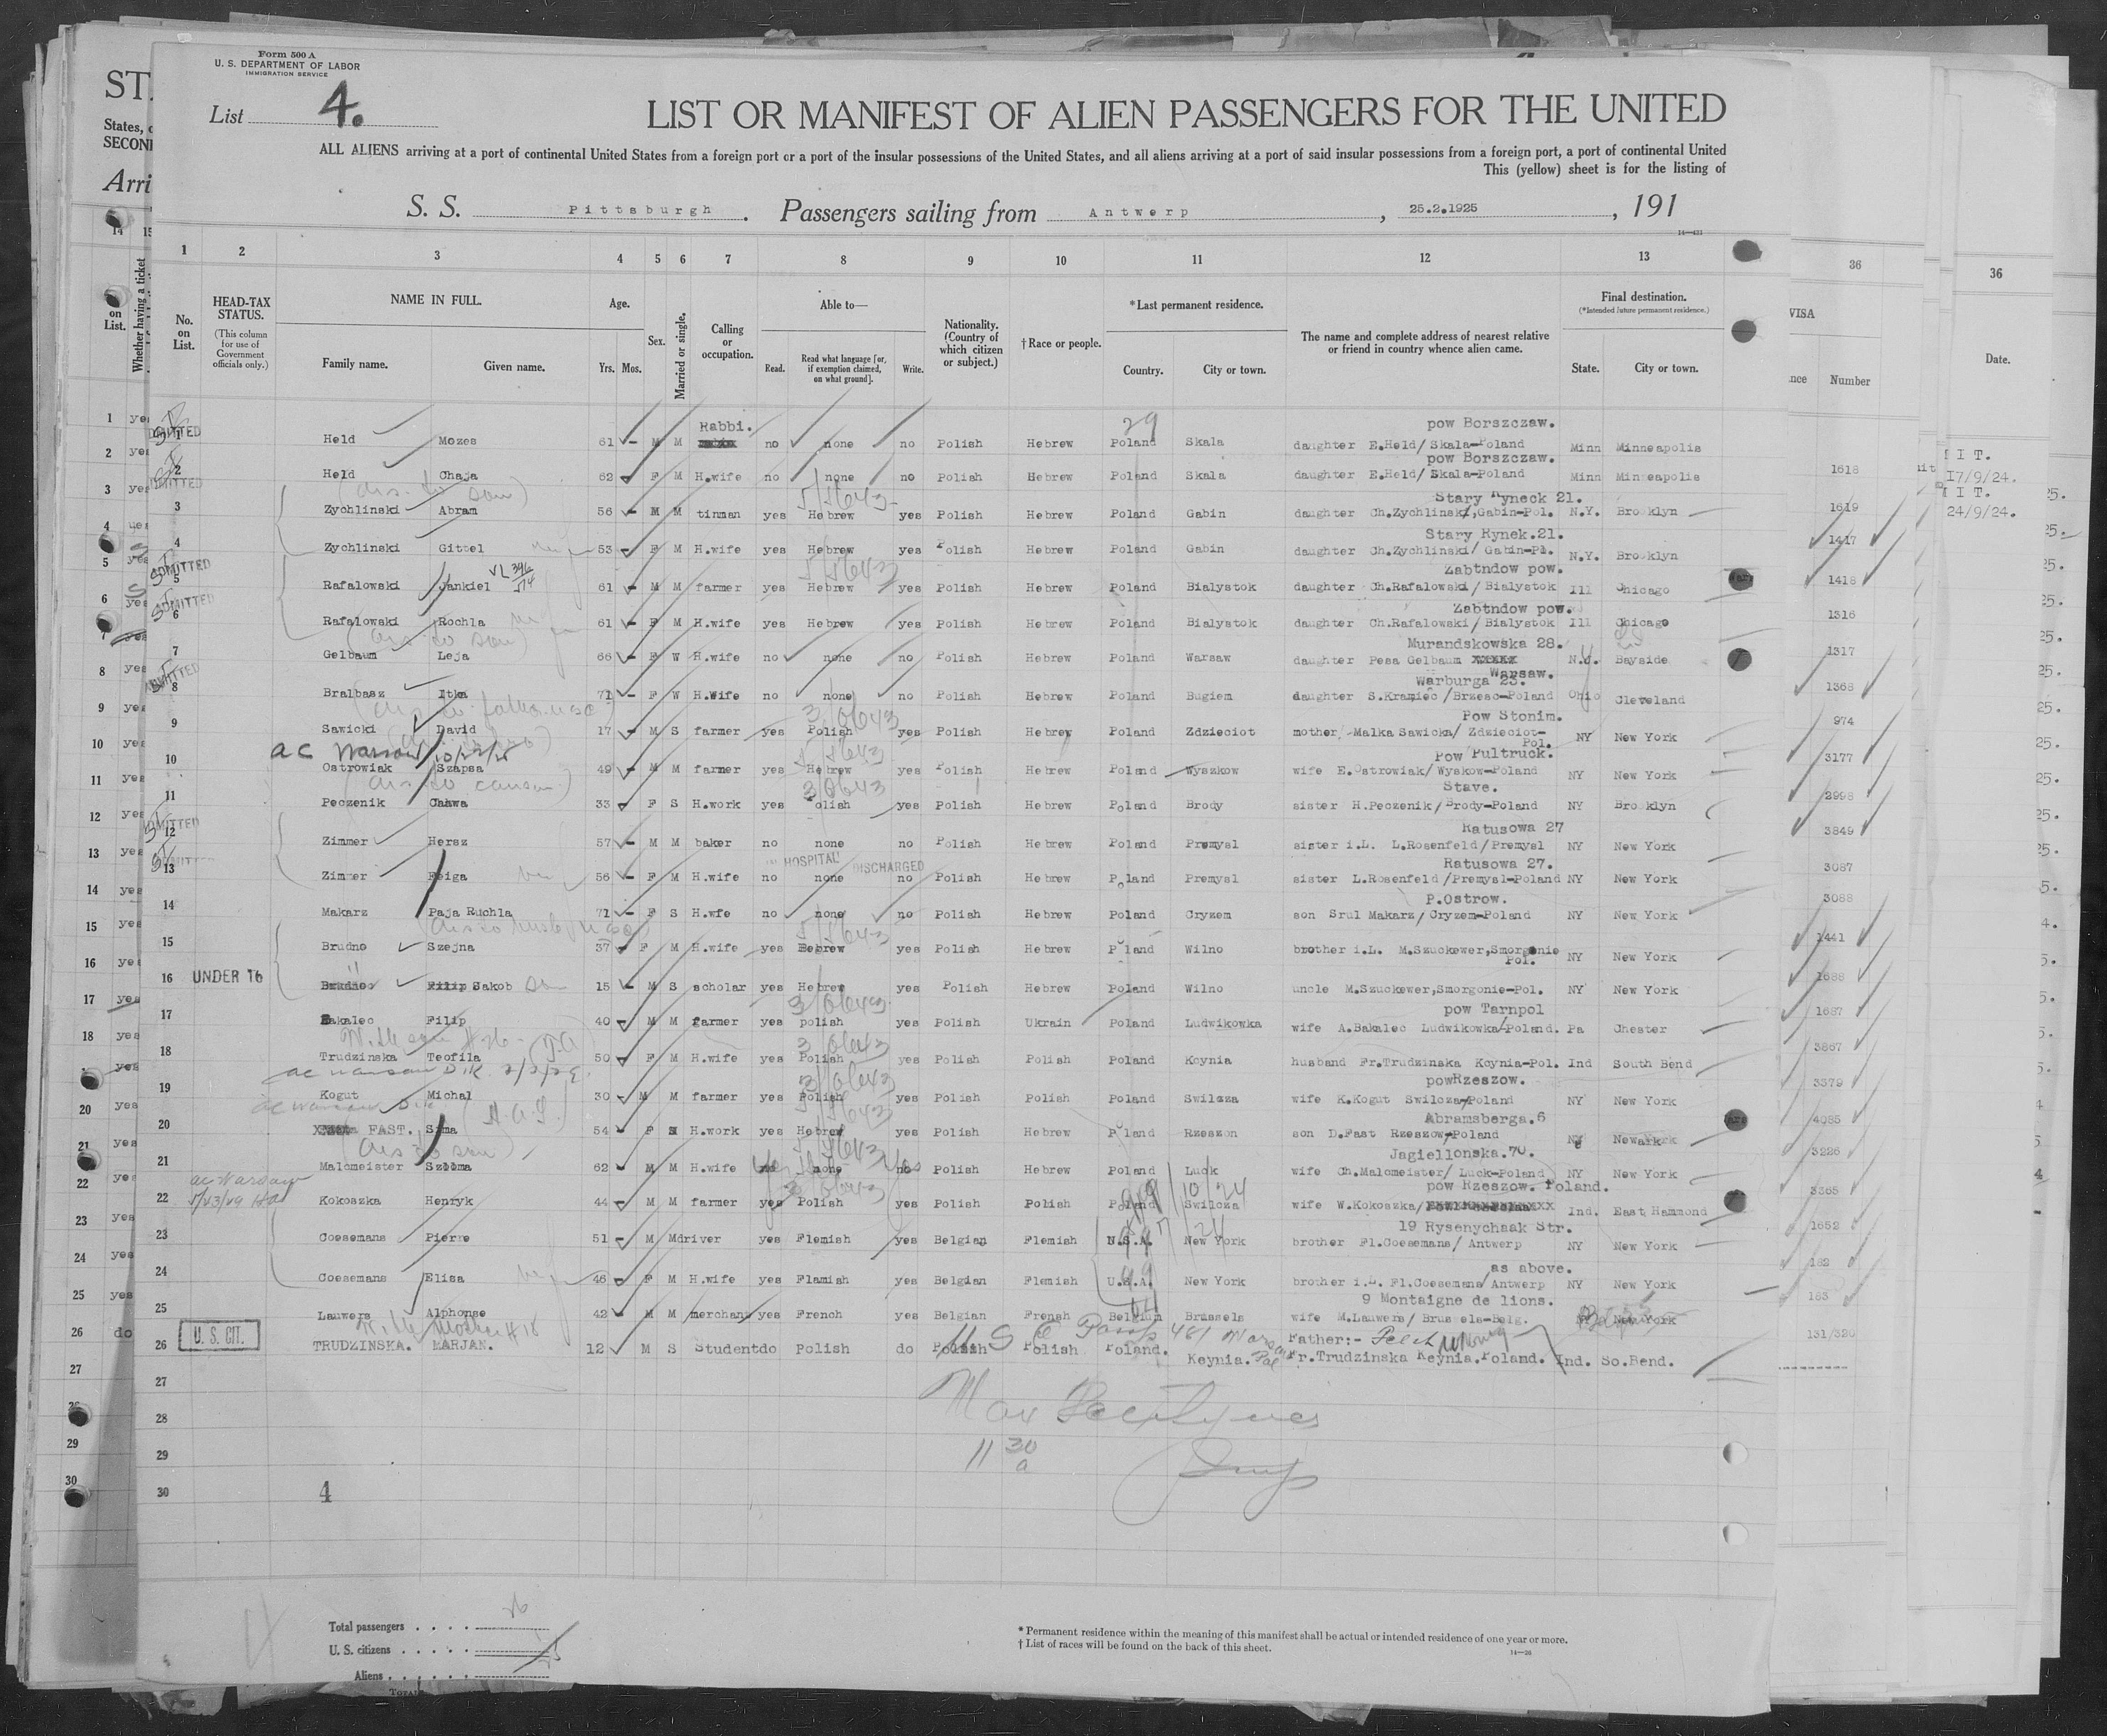 Form 500 A
U. S. DEPARTMENT OF LABOR
IMMIGRATION SERVICE
List 4.
LIST OR MANIFEST OF ALIEN PASSENGERS FOR THE UNITED
ALL ALIENS arriving at a port of continental United States from a foreign port or a port of the insular possessions of the United States, and all aliens arriving at a port of said insular possessions from a foreign port, a port of continental United
This (yellow) sheet is for the listing of
S. S. Pittsburgh. Passengers sailing from Antwerp, 25.2.1925, 191
1 2 3 4 5 6 7 8 9 10 11 12 13
No. on List.
HEAD-TAX STATUS.
(This column for use of Government officials only.)
NAME IN FULL.
Family name. Given name.
Age.
Yrs. Mos.
Sex.
Married or single.
Calling or occupation.
Able to—
Read. Read what language [or, if exemption claimed, on what ground]. Write.
Nationality. (Country of which citizen or subject.)
†Race or people.
*Last permanent residence.
Country. City or town.
The name and complete address of nearest relative or friend in country whence alien came.
Final destination.
(*Intended future permanent residence.)
State. City or town.
Rabbi. pow Borszczaw.
1 Held Mozes 61 - M M no none no Polish Hebrew Poland Skala daughter E.Held/Skala-Poland Minn Minneapolis
pow Borszczaw.
2 Held Chaja 62 F M H.wife no none no Polish Hebrew Poland Skala daughter E.Held/Skala-Poland Minn Minneapolis
Stary Ryneck 21.
3 Zychlinski Abram 56 - M M tinman yes Hebrew yes Polish Hebrew Poland Gabin daughter Ch.Zychlinski,Gabin-Pol. N.Y. Brooklyn
Stary Rynek.21.
4 Zychlinski Gittel 53 - F M H.wife yes Hebrew yes Polish Hebrew Poland Gabin daughter Ch.Zychlinski/Gabin-Pl. N.Y. Brooklyn
Zabtndow pow.
5 Rafalowski Jankiel 61 - M M farmer yes Hebrew yes Polish Hebrew Poland Bialystok daughter Ch.Rafalowski/Bialystok Ill Chicago
Zabtndow pow.
6 Rafalowski Rochla 61 - F M H.wife yes Hebrew yes Polish Hebrew Poland Bialystok daughter Ch.Rafalowski/Bialystok Ill Chicago
Murandskowska 28.
7 Gelbaum Leja 66 - F W H.wife no none no Polish Hebrew Poland Warsaw daughter Pesa Gelbaum Warsaw. N.J. Bayside
Warburga 23.
8 Bralbasz Itka 71 - F W H.Wife no none no Polish Hebrew Poland Bugiem daughter S.Kramiec/Brzesc-Poland Ohio Cleveland
Pow Stonim.
9 Sawicki David 17 - M S farmer yes Polish yes Polish Hebrew Poland Zdzieciot mother Malka Sawicka/Zdzieciot-Pol. NY New York
Pow Pultruck.
10 Ostrowiak Szapsa 49 - M M farmer yes Hebrew yes Polish Hebrew Poland Wyszkow wife E.Ostrowiak/Wyskow-Poland NY New York
Stave.
11 Peczenik Chawa 33 F S H.work yes Polish yes Polish Hebrew Poland Brody sister H.Peczenik/Brody-Poland NY Brooklyn
Ratusowa 27
12 Zimmer Hersz 57 - M M baker no none no Polish Hebrew Poland Premysl sister i.L. L.Rosenfeld/Premysl NY New York
HOSPITAL DISCHARGED Ratusowa 27.
13 Zimmer Feiga 56 - F M H.wife no none no Polish Hebrew Poland Premysl sister L.Rosenfeld/Premysl-Poland NY New York
P.Ostrow.
14 Makarz Paja Ruchla 71 - F S H.wfe no none no Polish Hebrew Poland Cryzem son Srul Makarz/Cryzem-Poland NY New York
15 Brudno Szejna 37 F M H.wife yes Hebrew yes Polish Hebrew Poland Wilno brother i.L. M.Szuckewer,Smorgonie Pol. NY New York
16 UNDER 16 Jakob son 15 - M S scholar yes Hebrew yes Polish Hebrew Poland Wilno uncle M.Szuckewer,Smorgonie-Pol. NY New York
pow Tarnpol
17 Bakalec Filip 40 M M farmer yes polish yes Polish Ukrain Poland Ludwikowka wife A.Bakalec Ludwikowka/Poland. Pa Chester
18 Trudzinska Teofila 50 - F M H.wife yes Polish yes Polish Polish Poland Kcynia husband Fr.Trudzinska Kcynia-Pol. Ind South Bend
powRzeszow.
19 Kogut Michal 30 - M M farmer yes Polish yes Polish Polish Poland Swilcza wife K.Kogut Swilcza-Poland NY New York
Abramsberga.6
20 FAST. Sima 54 F H.work yes Hebrew yes Polish Hebrew Poland Rzeszon son D.Fast Rzeszow-Poland Newark
Jagiellonska.70.
21 Malomeister Szloma 62 M M H.wife none Polish Hebrew Poland Luck wife Ch.Malomeister/Luck-Poland NY New York
pow Rzeszow. Poland.
22 Kokoszka Henryk 44 - M M farmer yes Polish yes Polish Polish Poland Swilcza wife W.Kokoszka/ Ind. East Hammond
19 Rysenychaak Str.
23 Coesemans Pierre 51 - M M driver yes Flemish yes Belgian Flemish U.S.A. New York brother Fl.Coesemans/Antwerp NY New York
as above.
24 Coesemans Elisa 46 F M H.wife yes Flamish yes Belgian Flemish U.S.A. New York brother i.L. Fl.Coesemans/Antwerp NY New York
9 Montaigne de lions.
25 Lauwers Alphonse 42 - M M merchant yes French yes Belgian Frensh Belgium Brussels wife M.Lauwers/Brussels-Belg. New York
Father:-
26 U. S. CIT. TRUDZINSKA. MARJAN. 12 M S Student do Polish do Polish Polish Poland. Keynia. Fr.Trudzinska Keynia.Poland. Ind. So.Bend.
27
28
29
11 30 a
30
4
Total passengers . . . . 26
U. S. citizens . . . . .
Aliens . . . . . .
* Permanent residence within the meaning of this manifest shall be actual or intended residence of one year or more.
† List of races will be found on the back of this sheet.
14—26
36
VISA
Number
1618
1619
1417
1418
1316
1317
1368
974
3177
2998
3849
3087
3088
1441
1688
1687
3867
3379
4085
3226
3365
1652
182
163
131/320
36
Date.
17/9/24.
24/9/24.